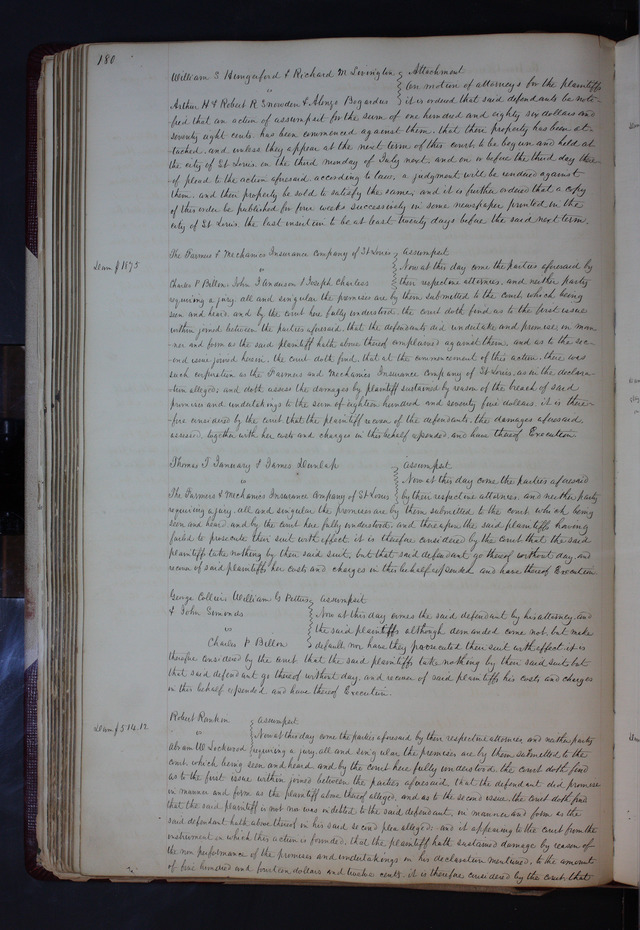 180
William S Hungerford & Richard M Livingston Attachment
vs On motion of attorneys for the plaintiffs
Arthur H & Robert R Snowden & Alonzo Bogardus it is ordered that said defendants be noti-
fied that an action of assumpsit for the sum of one hundred and eighty six dollars and
seventy eight cents has been commenced against them, that their property has been at-
tached, and unless they appear at the next term of this court, to be begun and held at
the city of St Louis on the third monday of July next, and on or before the third day there-
of plead to the action aforesaid according to law, a judgment will be rendered against
them, and their property be sold to satisfy the same, and it is further ordered that a copy
of this order be published for four weeks successively in some newspaper printed in the
city of St Louis, the last insertion to be at least twenty days before the said next term.
The Farmers & Mechanics Insurance Company of St Louis assumpsit
Dam $1875
vs Now at this day come the parties aforesaid by
Charles P Billon, John F Anderson & Joseph Charless their respective attornies, and neither party
requiring a jury, all and singular the premises are by them submitted to the court which being
seen and heard, and by the court here fully understood, the court doth find as to the first issue
within joined between the parties aforesaid, that the defendants did undertake and promise, in man-
ner and form as the said plaintiff hath above thereof complained against them, and as to the sec-
ond issue joined herein, the court doth find, that at the commencement of this action, there was
such corporation as the Farmers and Mechanics Insurance Company of St Louis, as in the declara-
tion alleged, and doth assess the damages by plaintiff sustained by reason of the breach of said
promises and undertakings to the sum of eighteen hundred and seventy five dollars. it is there-
fore considered by the court that the plaintiff recover of the defendants, the damages aforesaid,
assessed, together with her costs and charges in this behalf expended and have thereof Execution
Thomas T January & James Dunlap assumpsit
vs Now at this day come the parties aforesaid
The Farmers & Mechanics Insurance Company of St Louis by their respective attornies, and neither party
requiring a jury, all and singular the premises are by them submitted to the court which being
seen and heard, and by the court here fully understood, and thereupon the said plaintiffs having
failed to prosecute their suit with effect it is therefore considered by the court that the said
plaintiffs take nothing by their said suit, but that said defendant go thereof without day, and
recover of said plaintiffs her costs and charges in this behalf expended and have thereof Execution
George Collier, William G Pettus assumpsit
& John Simonds Now at this day comes the said defendant by his attorney, and
vs the said plaintiffs although demanded come not, but make
Charles P Billon default, nor have they prosecuted their suit with effect it is
therefore considered by the court that the said plaintiffs take nothing by their said suit, but
that said defendant go thereof without day, and recover of said plaintiffs his costs and charges
in this behalf expended and have thereof Execution.
Robert Rankin assumpsit
Dam $514.12
vs Now at this day come the parties aforesaid by their respective attornies and neither party
Abram W Lockwood requiring a jury, all and singular the premises are by them submitted to the
court which being seen and heard and by the court here fully understood, the court doth find
as to the first issue within joined between the parties aforesaid, that the defendant did promise
in manner and form as the plaintiff above thereof alleged, and as to the second issue, the court doth find
that the said plaintiff is not nor was indebted to the said defendant, in manner and form as the
said defendant hath above thereof in his said second plea alleged; and it appearing to the court from the
instrument on which this action is founded, that the plaintiff hath sustained damage by reason of
the non performance of the promises and undertakings in his declaration mentioned, to the amount
of five hundred and fourteen dollars and twelve cents, it is therefore considered by the court that